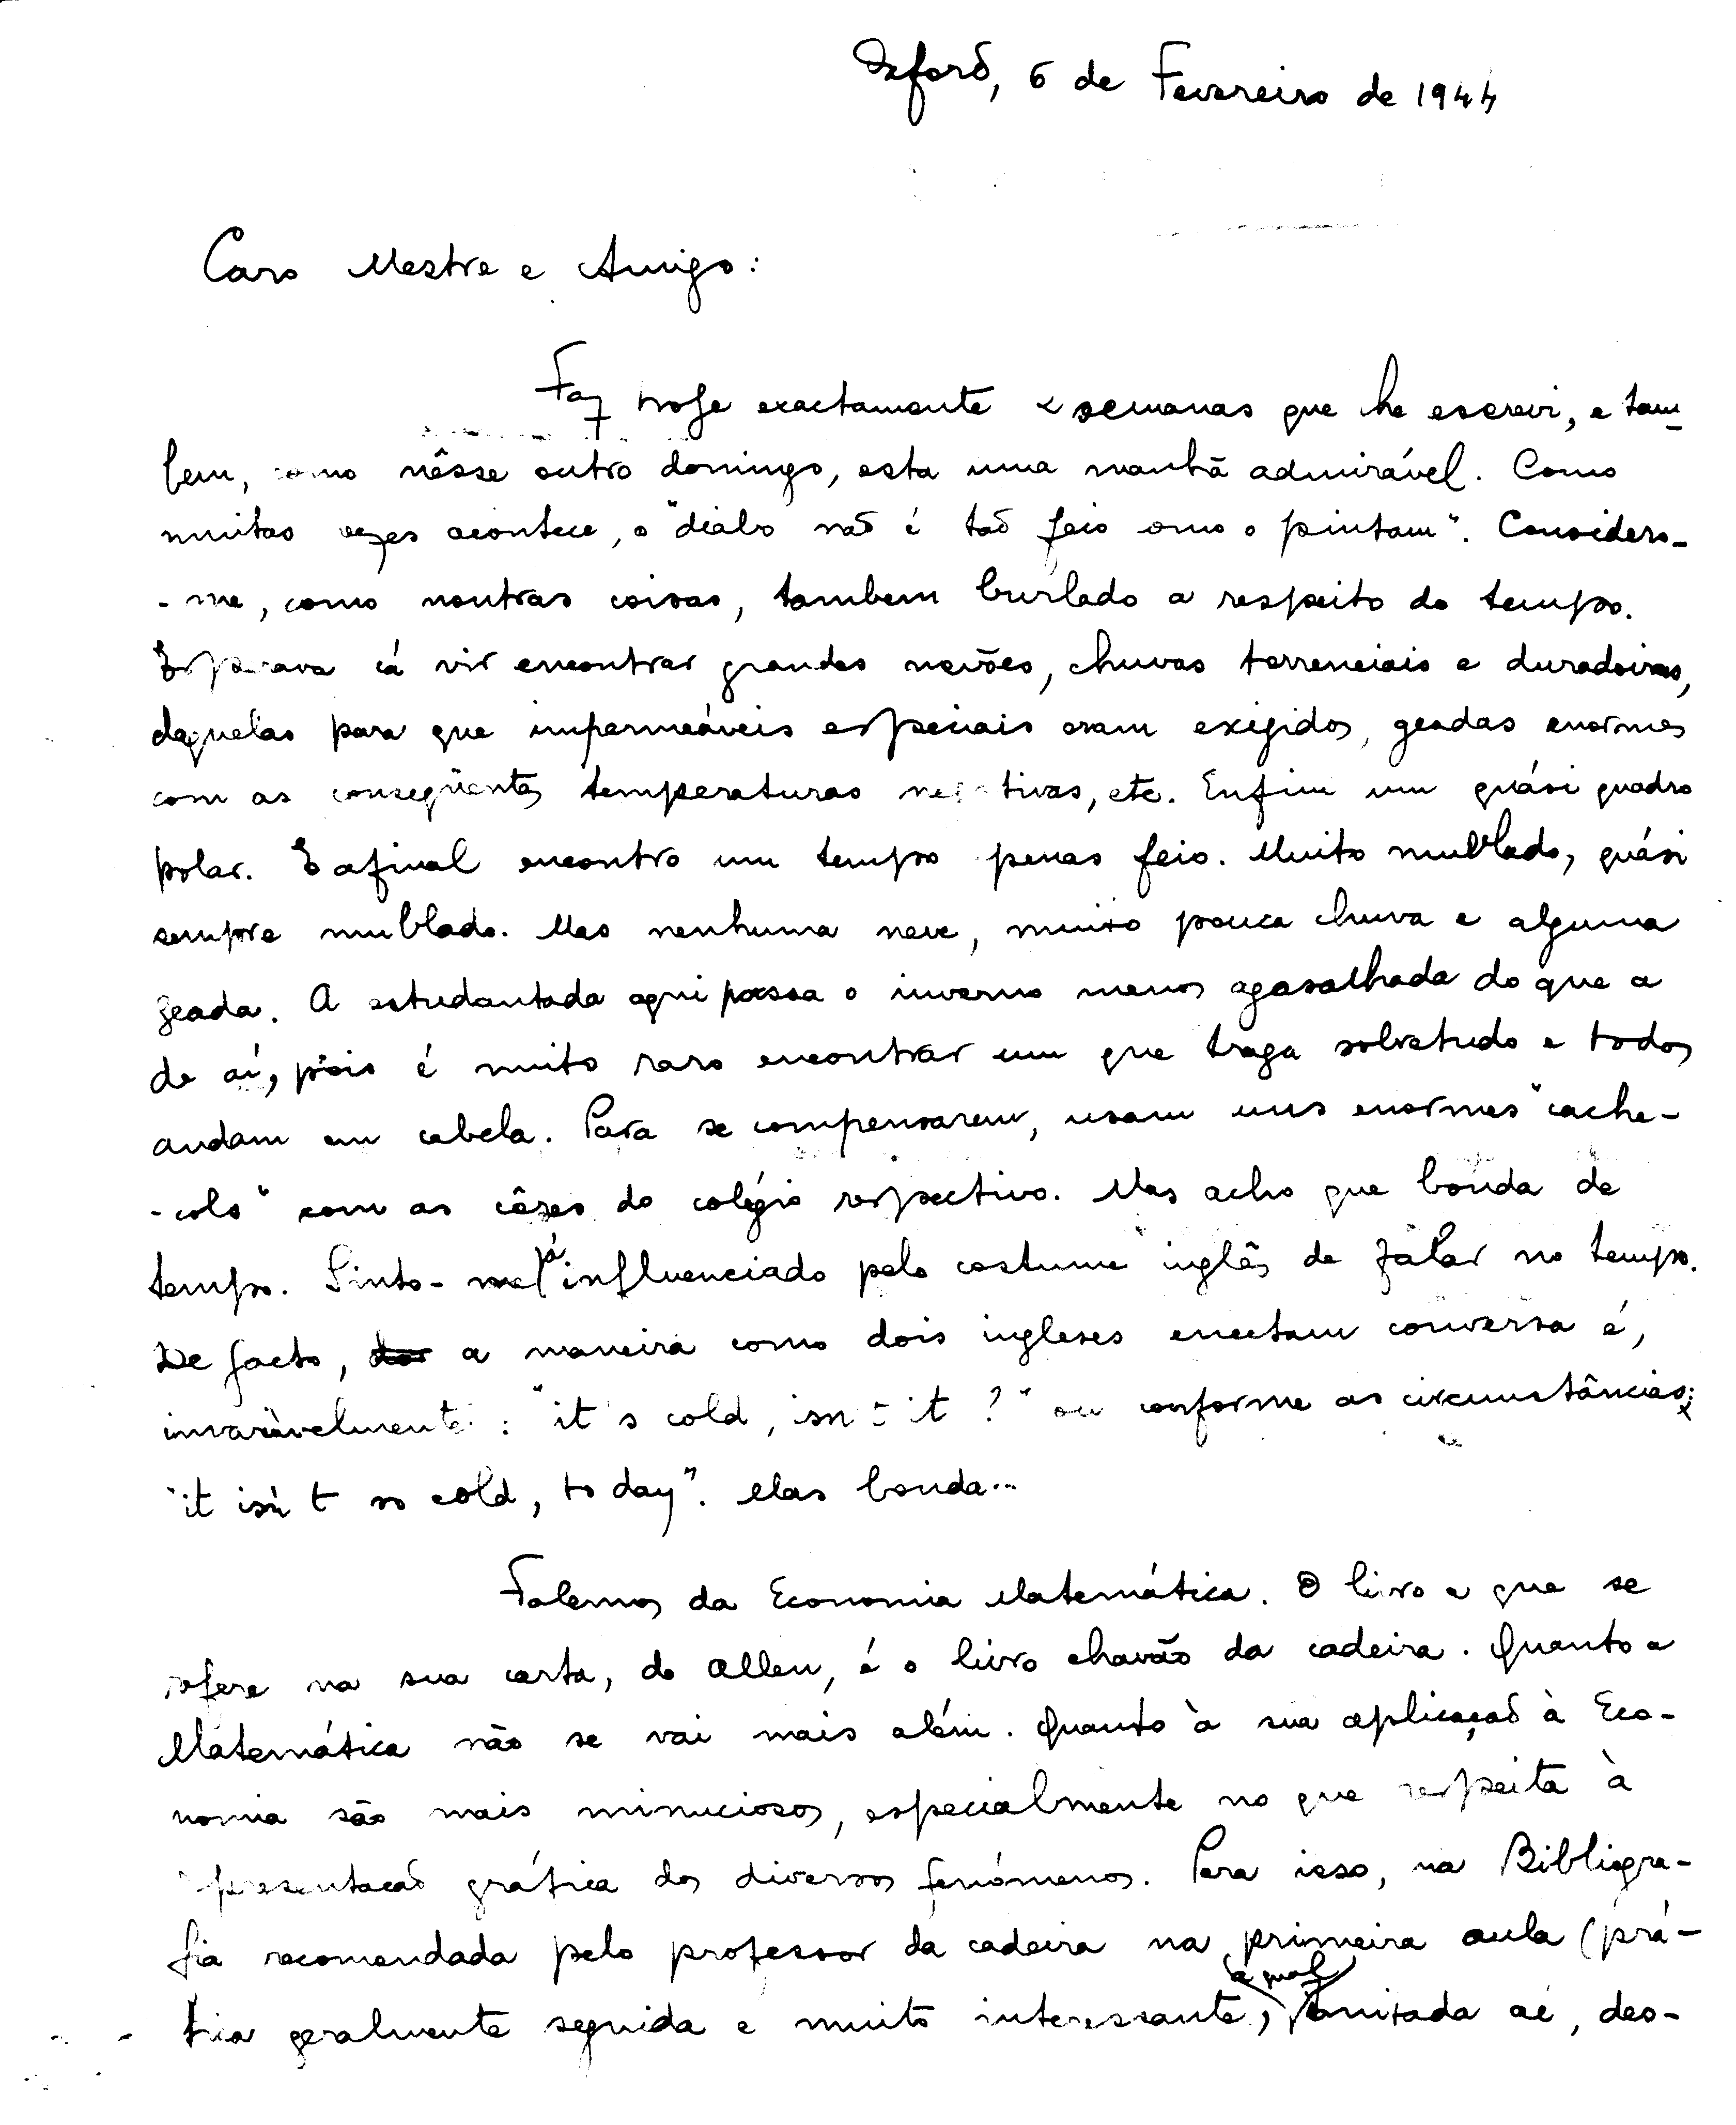 Oxford, 6 de Fevereiro de 1944
Caro Mestre e Amigo:
Faz hoje exactamente 2 semanas que lhe escrevi, e tam-
bem, como nêsse outro domingo, esta uma manhã admirável. Como
muitas vezes acontece, o "diabo não é tão feio como o pintam". Considero-
-me, como noutras coisas, tambem burlado a respeito do tempo.
Esperava cá vir encontrar grandes nevões, chuvas torrenciais e duradoiras,
daquelas para que impermeáveis especiais eram exigidos, geadas enormes
com as conseqüentes temperaturas negativas, etc. Enfim um quási quadro
polar. E afinal encontro um tempo apenas feio. Muito nublado, quási
sempre nublado. Mas nenhuma neve, muito pouca chuva e alguma
geada. A estudantada aqui passa o inverno menos agasalhada do que a
de aí, pois é muito raro encontrar um que traga sobretudo e todos
andam em cabelo. Para se compensarem, usam uns enormes "cache-
-cols" com as côres do colégio respectivo. Mas acho que bonda de
tempo. Sinto-me já influenciado pelo costume inglês de falar no tempo.
De facto, a maneira como dois ingleses encetam conversa é,
invariàvelmente: "it's cold, isn't it?" ou conforme as circunstâncias:
"it isn't so cold, to day". Mas bonda...
Falemos da Economia Matemática. O livro a que se
refere na sua carta, do Allen, é o livro chavão da cadeira. Quanto a
Matemática não se vai mais além. Quanto à sua aplicação à Eco-
nomia são mais minuciosos, especialmente no que respeita à
representação gráfica dos diversos fenómenos. Para isso, na Bibliogra-
fia recomendada pelo professor da cadeira na primeira aula (prá-
tica geralmente seguida e muito interessante, a mal imitada aí, des-